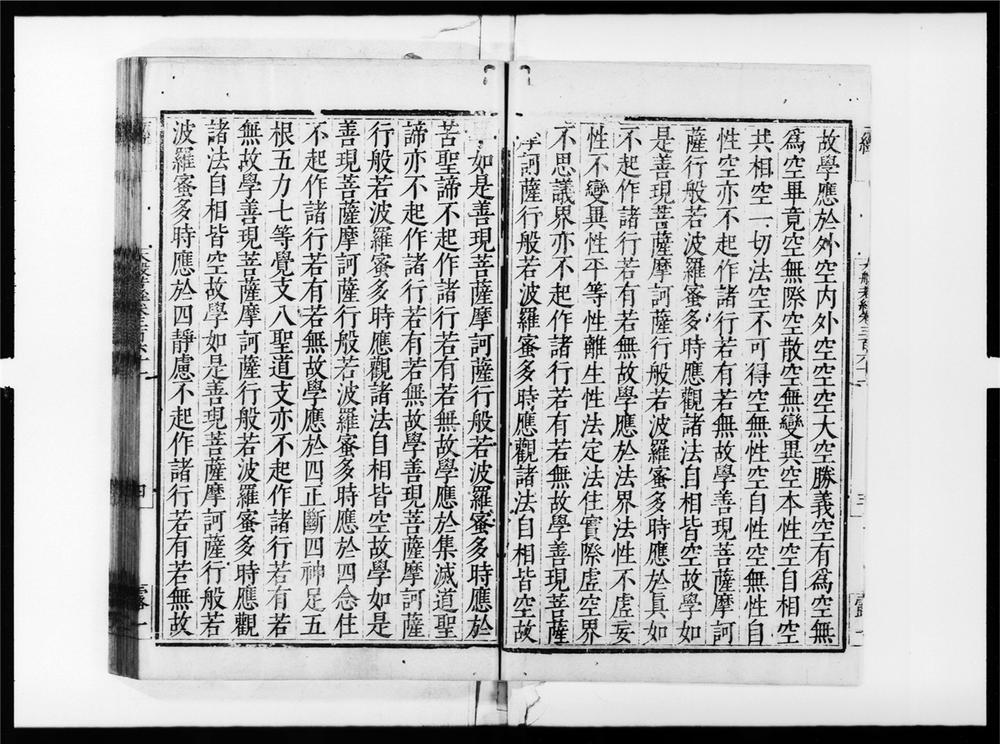 故學應於外空內外空空空大空勝義空有爲空無
爲空畢竟空無際空散空無變異空本性空自相空
共相空一切法空不可得空無性空自性空無性自
性空亦不起作諸行若有若無故學善現菩薩摩訶
薩行般若波羅蜜多時應觀諸法自相皆空故學如
是善現菩薩摩訶薩行般若波羅蜜多時應於真如
不起作諸行若有若無故學應於法界法性不虛妄
性不變異性平等性離生性法定法住實際虛空界
不思議界亦不起作諸行若有若無故學善現菩薩
訶薩行般若波羅蜜多時應觀諸法自相皆空故
如是善現菩薩摩訶薩行般若波羅蜜多時應於
苦聖諦不起作諸行若有若無故學應於集滅道聖
諦亦不起作諸行若有若無故學善現菩薩摩訶薩
行般若波羅蜜多時應觀諸法自相皆空故學如是
善現菩薩摩訶薩行般若波羅蜜多時應於四念住
不起作諸行若有若無故學應於四正斷四神足五
根五力七等覺支八聖道支亦不起作諸行若有若
無故學善現菩薩摩訶薩行般若波羅蜜多時應觀
諸法自相皆空故學如是善現菩薩摩訶薩行般若
波羅蜜多時應於四靜慮不起作諸行若有若無故